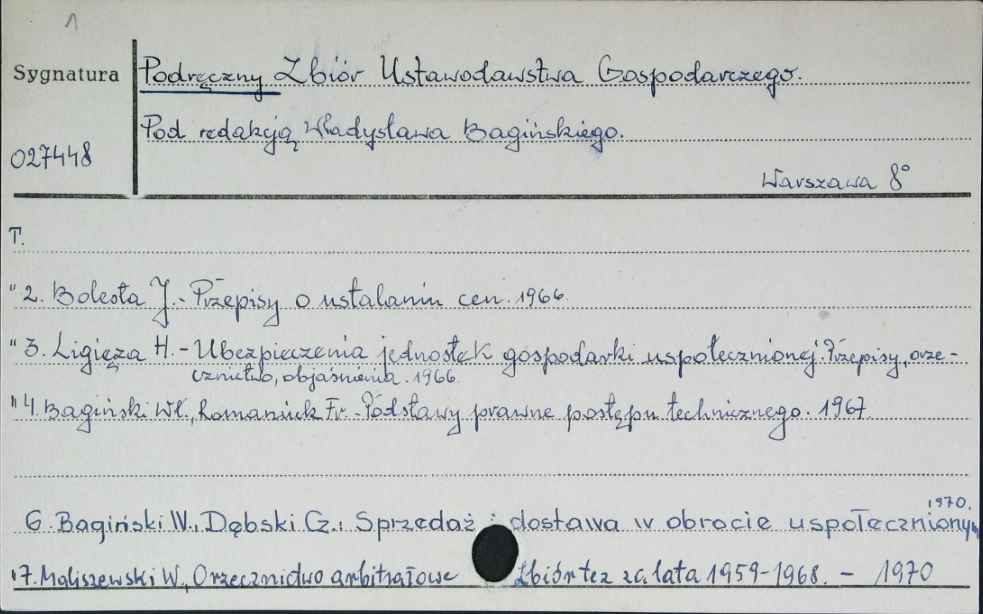 1
Sygnatura
Podręczny Zbiór Ustawodawstwa Gospodarczego.
Pod redakcją Władysława Bagińskiego.
027448
Warszawa 8°
T.
" 2. Bolesta J. - Przepisy o ustalaniu cen. 1966.
" 3. Ligięza H. - Ubezpieczenia jednostek gospodarki uspołecznionej. Przepisy, orze-
cznictwo, objaśnienia. 1966.
" 4. Bagiński Wł., Romaniuk Fr. - Podstawy prawne postępu technicznego. 1967
1970.
6. Bagiński W., Dębski Cz., Sprzedaż i dostawa w obrocie uspołecznionym
" 7. Maliszewski W., Orzecznictwo arbitrażowe Zbiór tez za lata 1959-1968. - 1970